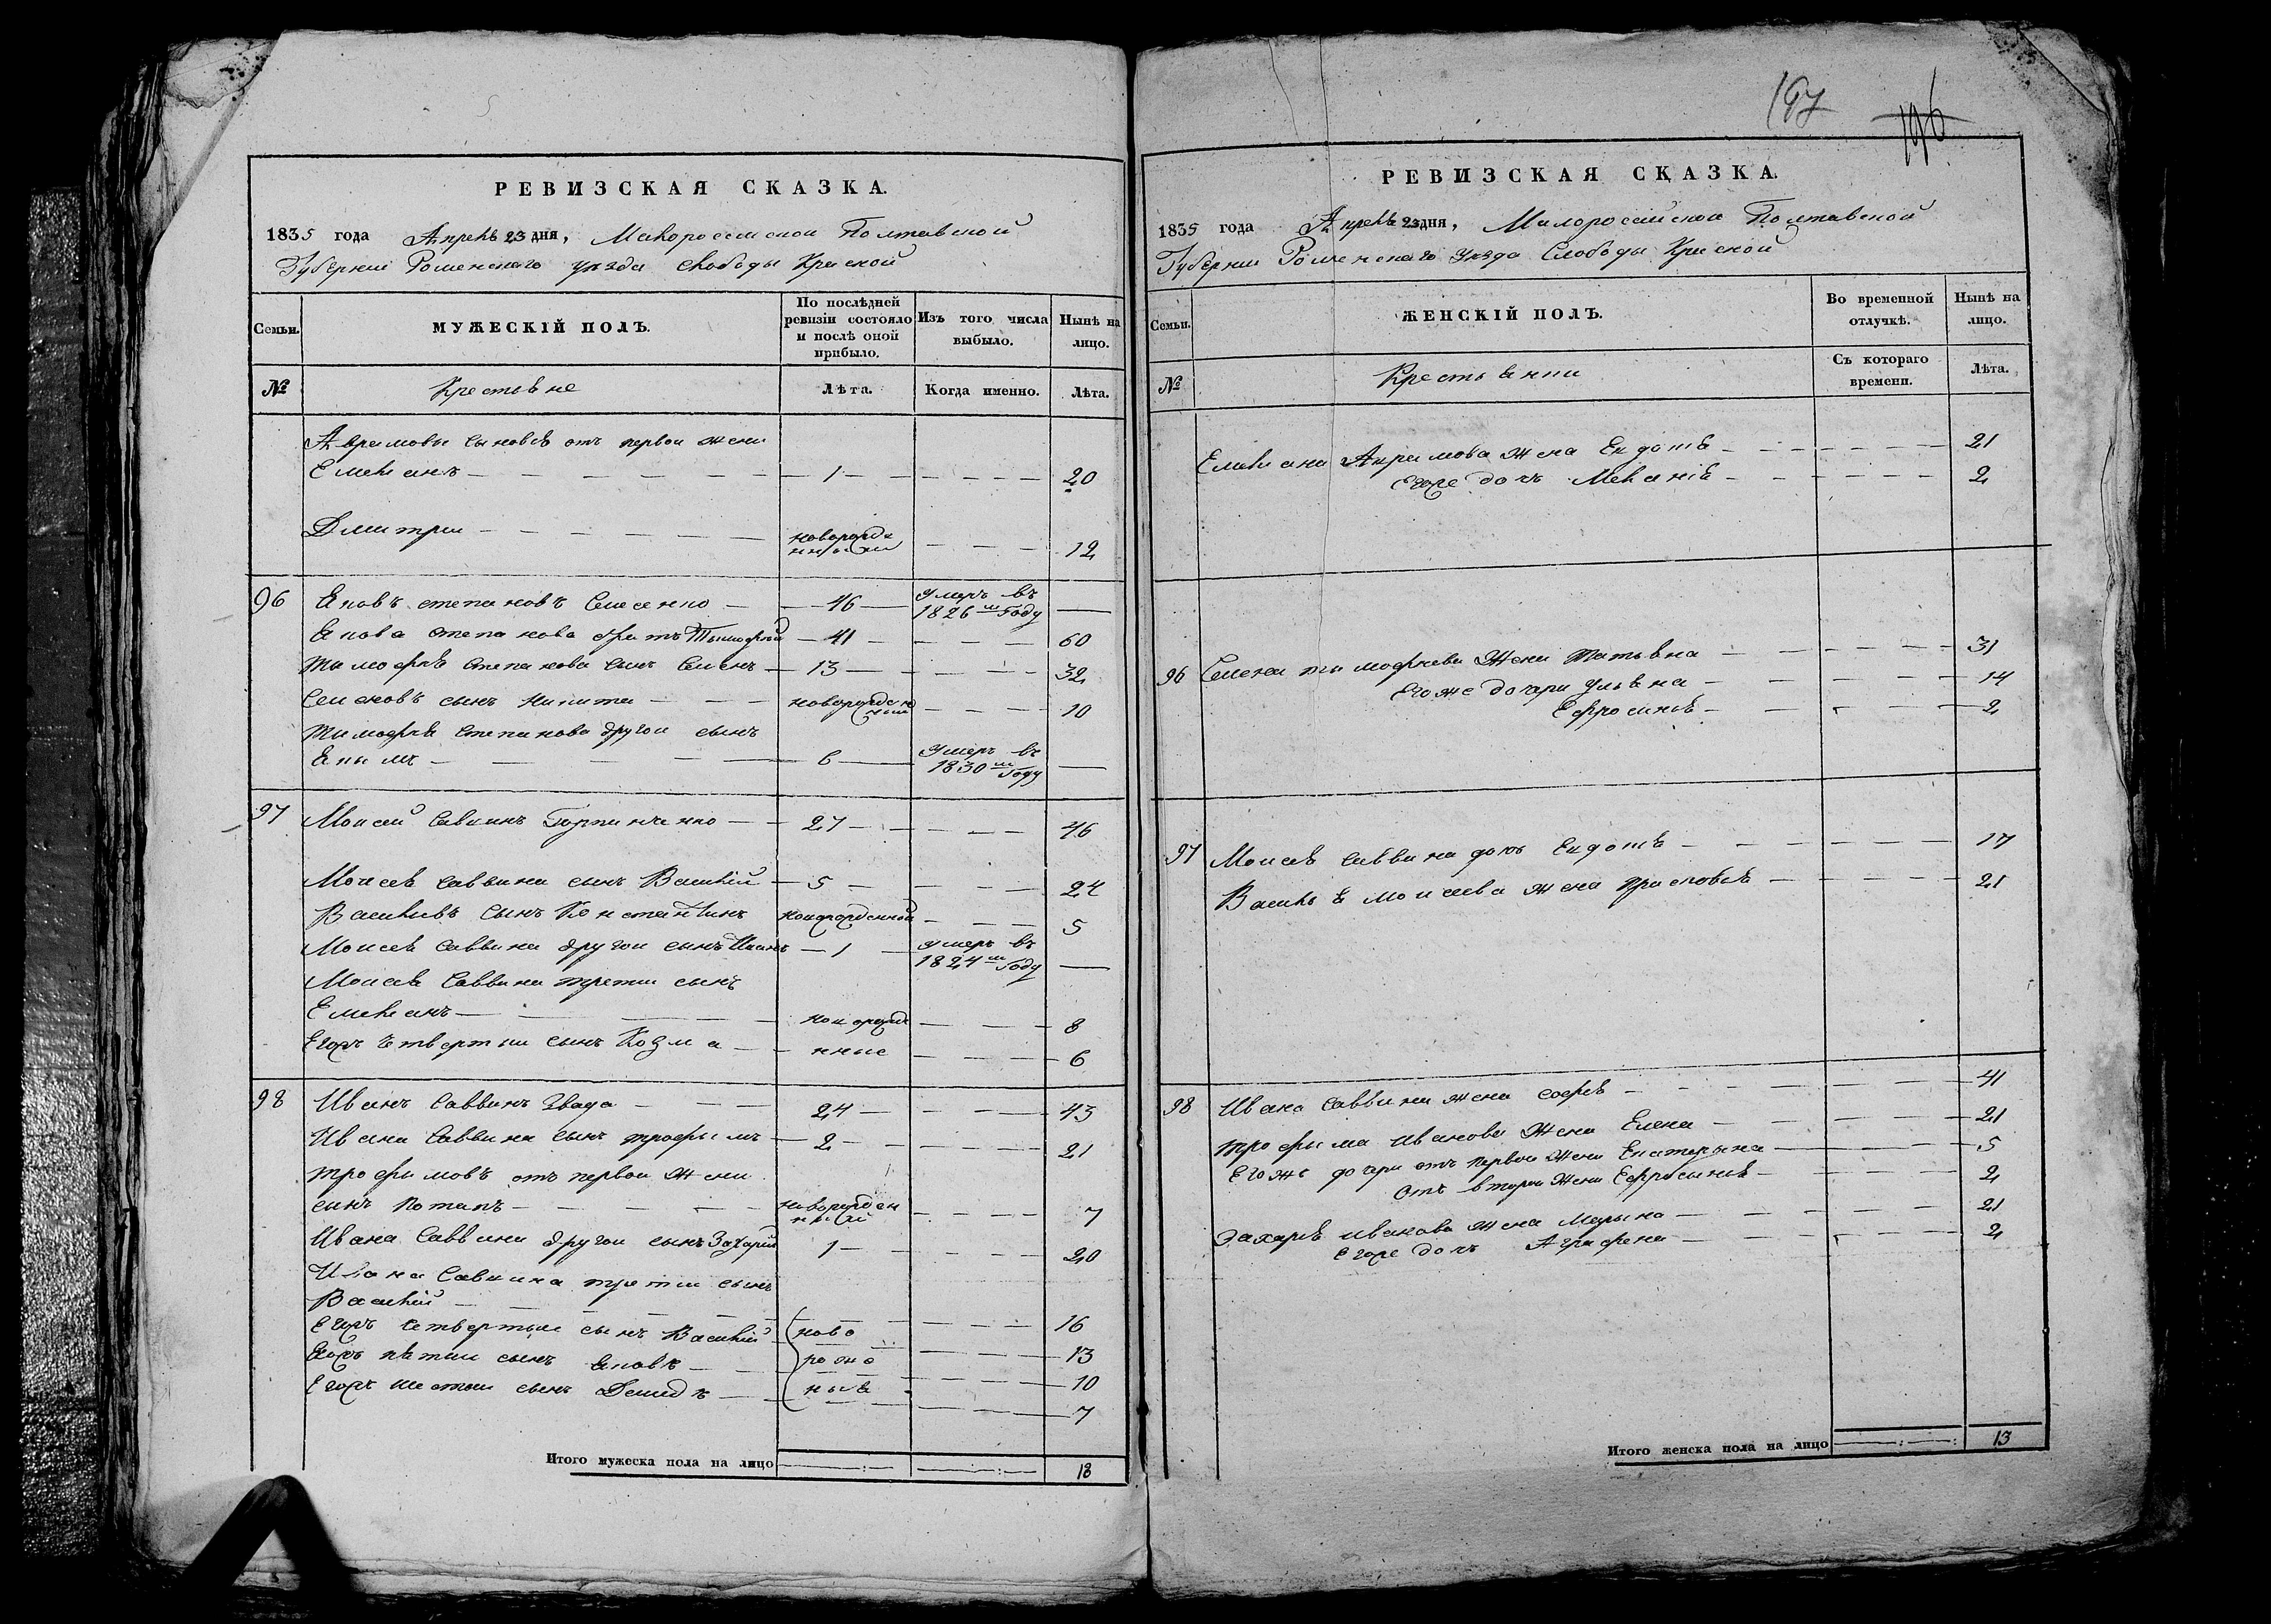 197 196
РЕВИЗСКАЯ СКАЗКА.
1835 года Апреля 23 дня, Малороссийской Полтавской
Губернии Роменскаго уезда слободы Краской
Семьи. МУЖЕСКІЙ ПОЛЪ. По послѣдней ревизіи состояло и послѣ оной прибыло. Изъ того числа выбыло. Нынѣ на лицо.
№ Крестьяне Лѣта. Когда именно. Лѣта.
Авраамовы сыновья отъ первои жени
Емельянъ 1 20
Дмитрии новорожденный 12
96 Яковъ степановъ 46 умеръ въ 1826 м году
Якова степанова братъ Тимофей 41 60
Тимофея степанова сынъ Семенъ 13 32
Семеновъ сынъ Никита новорожденный 10
Тимофея степанова другои сынъ
Екимъ 6 умеръ въ 1830 м году
97 Моисей Саввинъ Горпинченко 27 46
Моисея Саввина сынъ Василий 5 24
Васильевъ сынъ Константинъ новорожденной 5
Моисея Саввина другои сынъ Иванъ 1 умеръ въ 1824 м году
Моисея Саввина третии сынъ
Емельянъ новорожде 8
Егожъ четвертыи сынъ Козма нные 6
98 Иванъ Саввинъ Гвада 24 43
Ивана Саввина сынъ трофимъ 2 21
трофимовъ отъ первои жени
сынъ Потапъ новорожденный 7
Ивана Саввина другои сынъ Захарий 1 20
Ивана Саввина третии сынъ
Василий 16
Егожъ четвертыи сынъ Василий ново 13
Егожъ пятыи сынъ Яковъ рожд 10
Егожъ шестыи сынъ Демидъ ныя 7
Итого мужеска пола на лицо 18
РЕВИЗСКАЯ СКАЗКА.
1835 года Апреля 23 дня, Малороссийской Полтавской
Губернии Роменскаго уезда Слободы Краской
Семьи. ЖЕНСКІЙ ПОЛЪ. Во временной отлучкѣ. Нынѣ на лицо.
№ Крестьянки Съ котораго времени. Лѣта.
Емельяна Авраамова жена Евдотя 21
Егоже дочь Меланія 2
96 Семена тимофеева жена татьяна 31
Егоже дочери Ульяна 14
Ефросиня 2
97 Моисея Саввина дочь Евдотя 17
Василья моисеева жена Прасковья 21
98 Ивана Саввина жена софия 41
трофима иванова жена Елена 21
Егоже дочери отъ первои жени Екатерина 5
отъ второи жени Ефросиня 2
Захария иванова жена Марина 21
Егоже дочь Аграфена 2
Итого женска пола на лицо 13